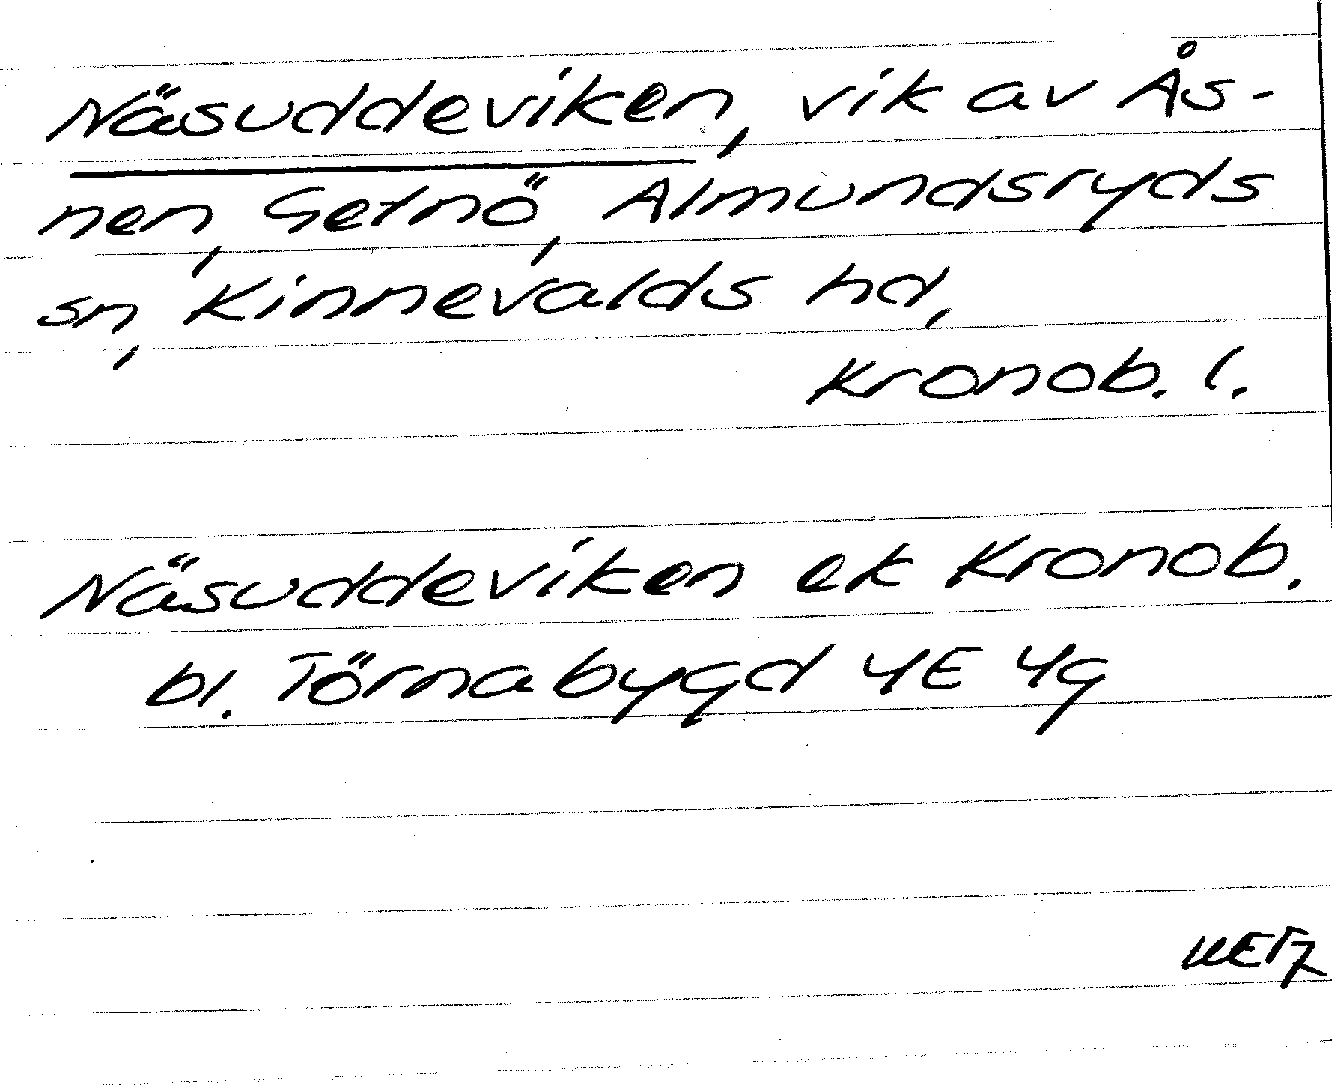 Näsuddeviken, vik av Ås-
nen, Getnö, Almundsryds
sn, Kinnevalds hd,
Kronob. l.
Näsuddeviken ek Kronob.
bl. Törnabygd 4E 4g